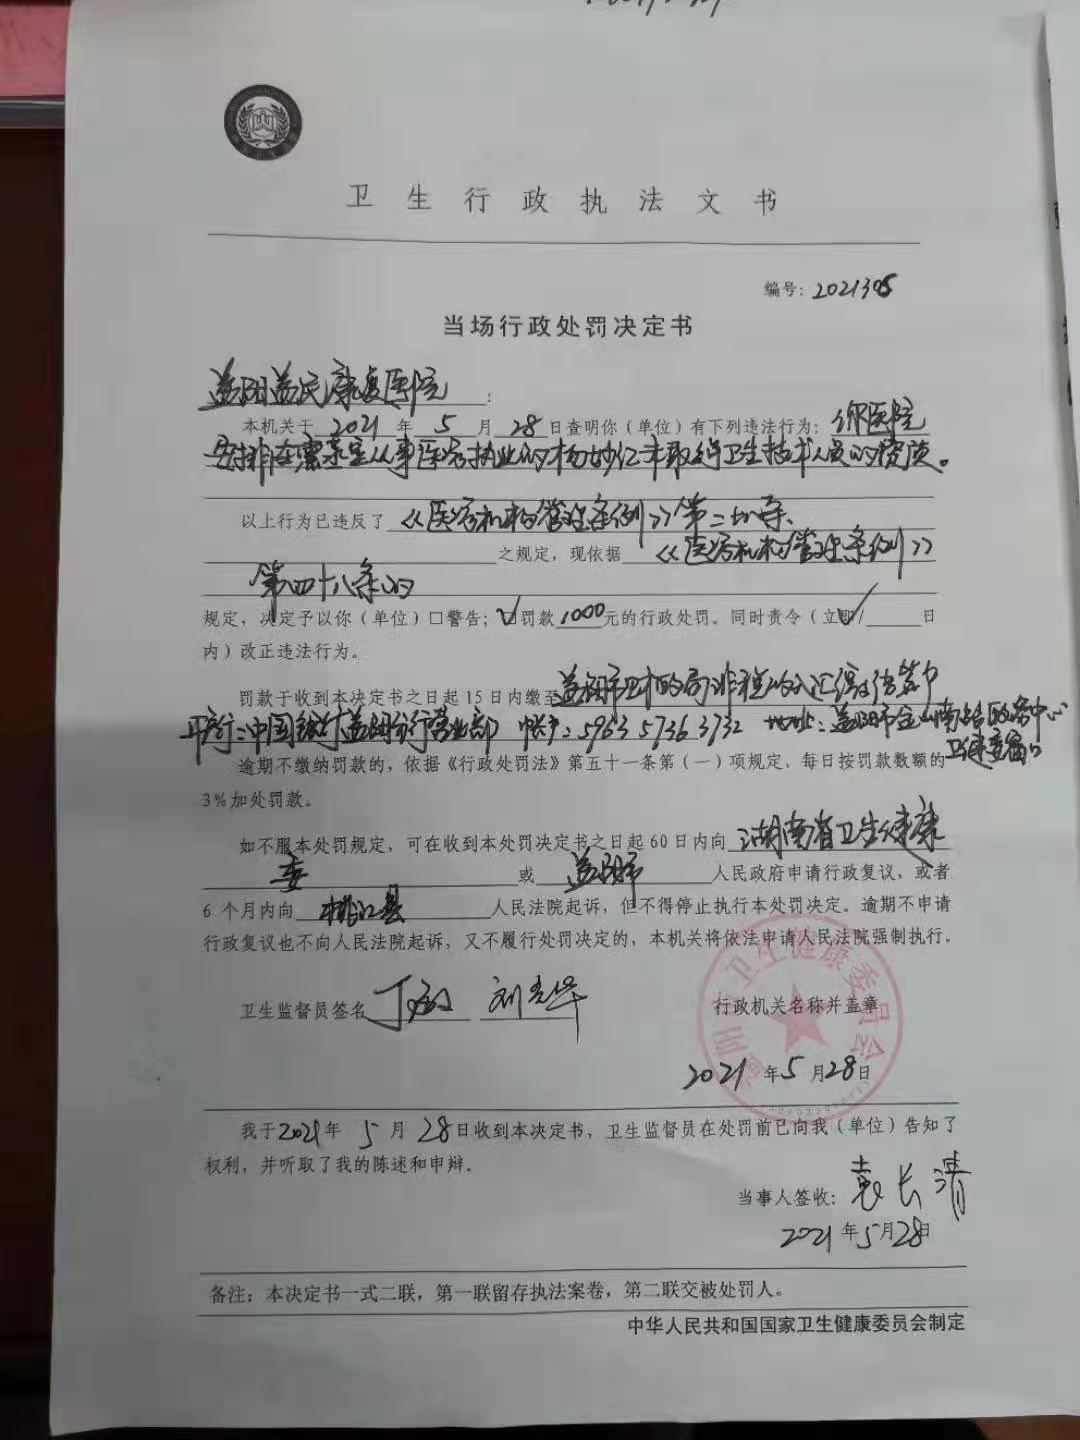 卫生行政执法文书
编号：2021305
当场行政处罚决定书
益阳益民康复医院：
本机关于 2021 年 5 月 28 日查明你（单位）有下列违法行为：你医院
安排在 从事医疗执业的杨妙仁未取得卫生技术人员的资质。
以上行为已违反了《医疗机构管理条例》第二十八条、
之规定，现依据《医疗机构管理条例》
第四十八条的
规定，决定予以你（单位）□警告；☑罚款 1000 元的行政处罚。同时责令（立即√/ 日
内）改正违法行为。
罚款于收到本决定书之日起 15 日内缴至益阳市财政局非税收入汇缴结算户
开户行：中国银行益阳分行营业部 帐户：5963 5736 3732 地址：益阳市金山南路政务中心
卫健委窗口
逾期不缴纳罚款的，依据《行政处罚法》第五十一条第（一）项规定，每日按罚款数额的
3%加处罚款。
如不服本处罚规定，可在收到本处罚决定书之日起 60 日内向湖南省卫生健康
委 或 益阳市 人民政府申请行政复议，或者
6 个月内向 桃江县 人民法院起诉，但不得停止执行本处罚决定。逾期不申请
行政复议也不向人民法院起诉，又不履行处罚决定的，本机关将依法申请人民法院强制执行。
卫生监督员签名 丁 刘
行政机关名称并盖章
卫生健康委员会
2021 年 5 月 28 日
我于 2021 年 5 月 28 日收到本决定书，卫生监督员在处罚前已向我（单位）告知了
权利，并听取了我的陈述和申辩。
当事人签收：袁长清
2021 年 5 月 28 日
备注：本决定书一式二联，第一联留存执法案卷，第二联交被处罚人。
中华人民共和国国家卫生健康委员会制定